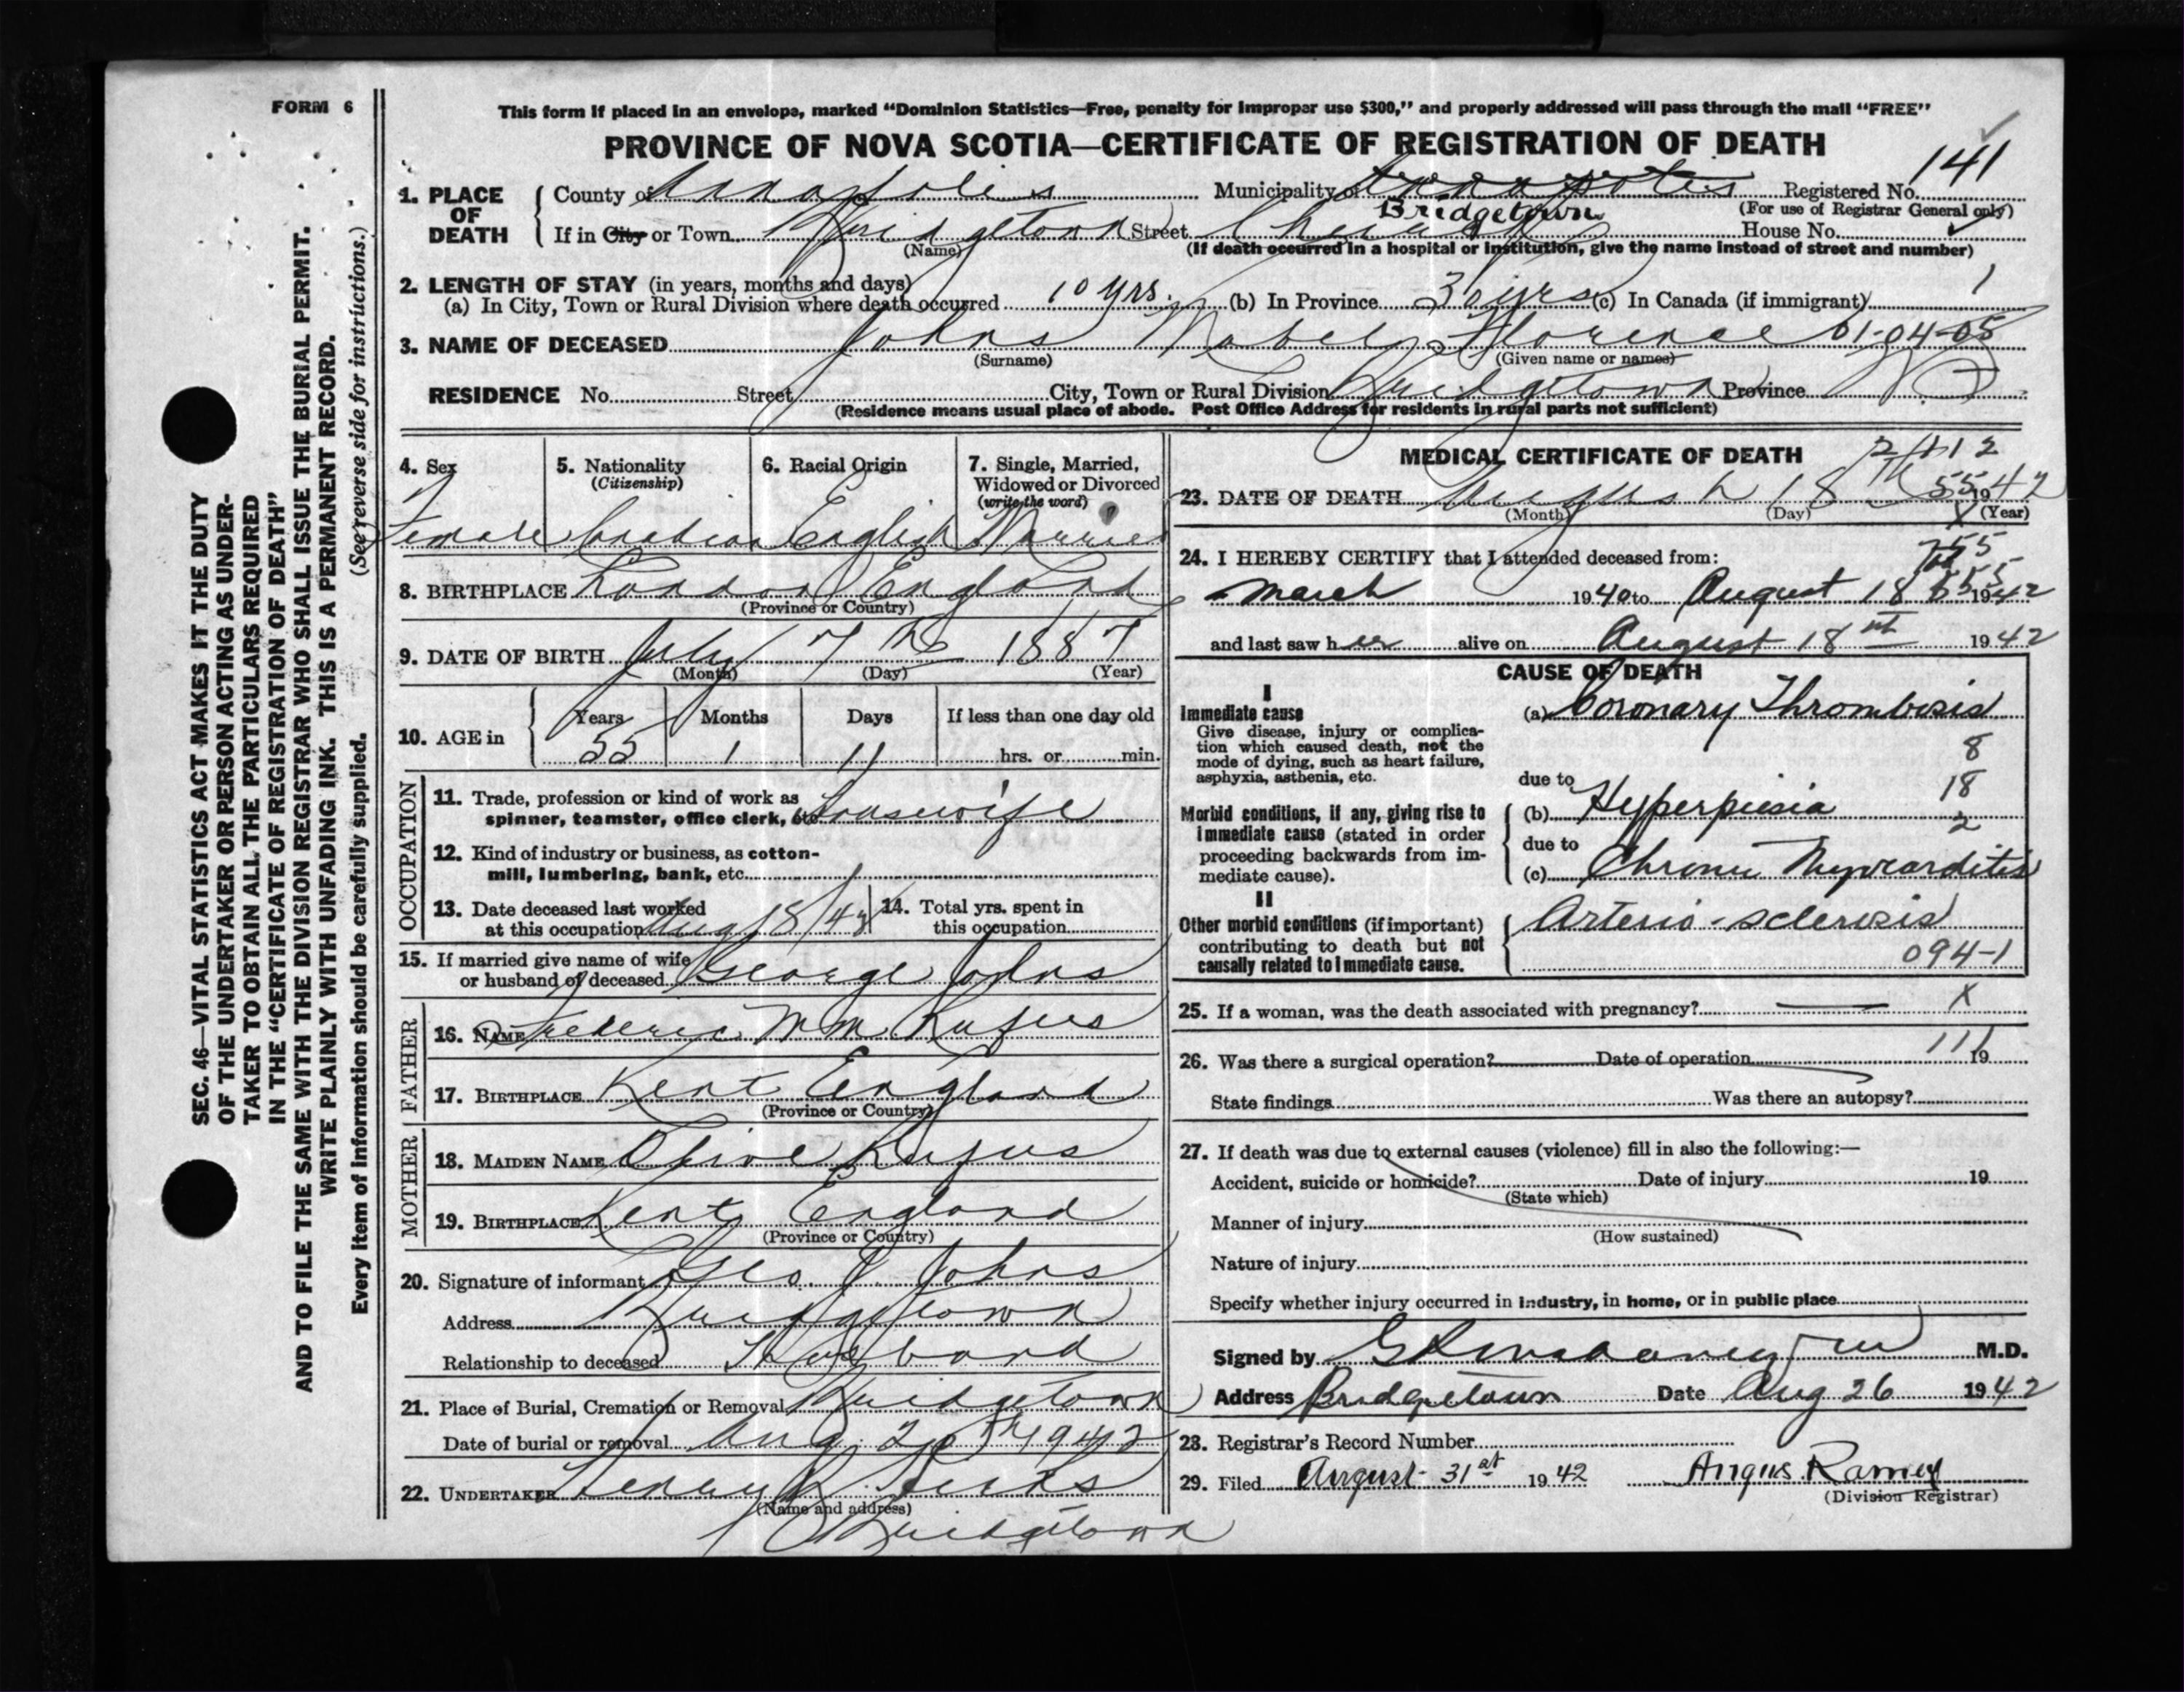 FORM 6
This form if placed in an envelope, marked “Dominion Statistics—Free, penalty for improper use $300,” and properly addressed will pass through the mail “FREE”
PROVINCE OF NOVA SCOTIA—CERTIFICATE OF REGISTRATION OF DEATH
141
1. PLACE OF DEATH
County of Annapolis Municipality of Annapolis Registered No.
Bridgetown (For use of Registrar General only)
If in City or Town Bridgetown Street Church House No.
(Name) (If death occurred in a hospital or institution, give the name instead of street and number)
2. LENGTH OF STAY (in years, months and days)
(a) In City, Town or Rural Division where death occurred 10 yrs. (b) In Province 30 yrs (c) In Canada (if immigrant) 1
3. NAME OF DECEASED Johns Mabel Florence 01-04-05
(Surname) (Given name or names)
RESIDENCE No. Street City, Town or Rural Division Bridgetown Province NS
(Residence means usual place of abode. Post Office Address for residents in rural parts not sufficient)
4. Sex 5. Nationality 6. Racial Origin 7. Single, Married,
(Citizenship) Widowed or Divorced
(write the word)
Female Canadian English Married
8. BIRTHPLACE London England
(Province or Country)
9. DATE OF BIRTH July 7th 1887
(Month) (Day) (Year)
10. AGE in Years Months Days If less than one day old
55 1 11 hrs. or min.
OCCUPATION
11. Trade, profession or kind of work as
spinner, teamster, office clerk, etc. Housewife
12. Kind of industry or business, as cotton-
mill, lumbering, bank, etc.
13. Date deceased last worked 14. Total yrs. spent in
at this occupation Aug 18/42 this occupation
15. If married give name of wife
or husband of deceased George Johns
FATHER
16. NAME Frederic Wm Rufus
17. BIRTHPLACE Kent England
(Province or Country)
MOTHER
18. MAIDEN NAME Olive Rufus
19. BIRTHPLACE Kent England
(Province or Country)
20. Signature of informant Geo J Johns
Address Bridgetown
Relationship to deceased Husband
21. Place of Burial, Cremation or Removal Bridgetown
Date of burial or removal Aug. 20th 1942
22. UNDERTAKER Henry B Hicks
(Name and address)
Bridgetown
MEDICAL CERTIFICATE OF DEATH 2 1 1 2
23. DATE OF DEATH August 18th 55 1942
(Month) (Day) (Year)
24. I HEREBY CERTIFY that I attended deceased from: 755
March 1940 to August 18 555 1942
and last saw her alive on August 18th 1942
CAUSE OF DEATH
I
Immediate cause (a) Coronary Thrombosis
Give disease, injury or complica-
tion which caused death, not the 8
mode of dying, such as heart failure,
asphyxia, asthenia, etc. due to 18
Morbid conditions, if any, giving rise to (b) Hyperpiesia
immediate cause (stated in order 2
proceeding backwards from im- due to
mediate cause). (c) Chronic Myocarditis
II
Other morbid conditions (if important) Arterio-sclerosis
contributing to death but not
causally related to immediate cause. 094-1
25. If a woman, was the death associated with pregnancy? — X
26. Was there a surgical operation? Date of operation 111 19
State findings Was there an autopsy?
27. If death was due to external causes (violence) fill in also the following:—
Accident, suicide or homicide? Date of injury 19
(State which)
Manner of injury
(How sustained)
Nature of injury
Specify whether injury occurred in industry, in home, or in public place
Signed by M.D.
Address Bridgetown Date Aug 26 1942
28. Registrar's Record Number
29. Filed August 31st 1942 Angus Ramey
(Division Registrar)
SEC. 46—VITAL STATISTICS ACT MAKES IT THE DUTY
OF THE UNDERTAKER OR PERSON ACTING AS UNDER-
TAKER TO OBTAIN ALL THE PARTICULARS REQUIRED
IN THE “CERTIFICATE OF REGISTRATION OF DEATH”
AND TO FILE THE SAME WITH THE DIVISION REGISTRAR WHO SHALL ISSUE THE BURIAL PERMIT.
WRITE PLAINLY WITH UNFADING INK. THIS IS A PERMANENT RECORD.
Every item of information should be carefully supplied. (See reverse side for instructions.)